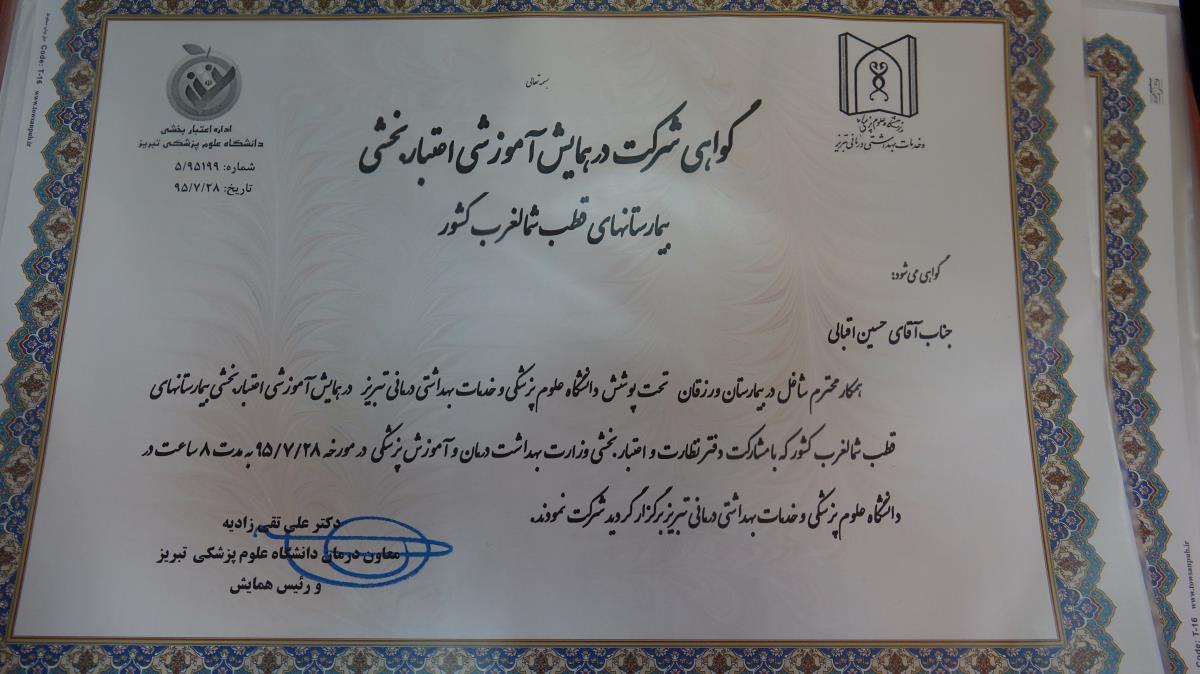 بسمه تعالی
دانشگاه علوم پزشکی
و خدمات بهداشتی درمانی تبریز
اداره اعتبار بخشی
دانشگاه علوم پزشکی تبریز
شماره: ۵/۹۵۱۹۹
تاریخ: ۹۵/۷/۲۸
گواهی شرکت در همایش آموزشی اعتبار بخشی
بیمارستانهای قطب شمالغرب کشور
گواهی می شود:
جناب آقای حسین اقبالی
همکار محترم شاغل در بیمارستان ورزقان تحت پوشش دانشگاه علوم پزشکی و خدمات بهداشتی درمانی تبریز در همایش آموزشی اعتبار بخشی بیمارستانهای
قطب شمالغرب کشور که با مشارکت دفتر نظارت و اعتبار بخشی وزارت بهداشت درمان و آموزش پزشکی در مورخه ۹۵/۷/۲۸ به مدت ۸ ساعت در
دانشگاه علوم پزشکی و خدمات بهداشتی درمانی تبریز برگزار گردید شرکت نمودند.
دکتر علی تقی زادیه
معاون درمان دانشگاه علوم پزشکی تبریز
و رئیس همایش
Code: T-16 www.towsanpub.ir
Code: T-16 www.towsanpub.ir